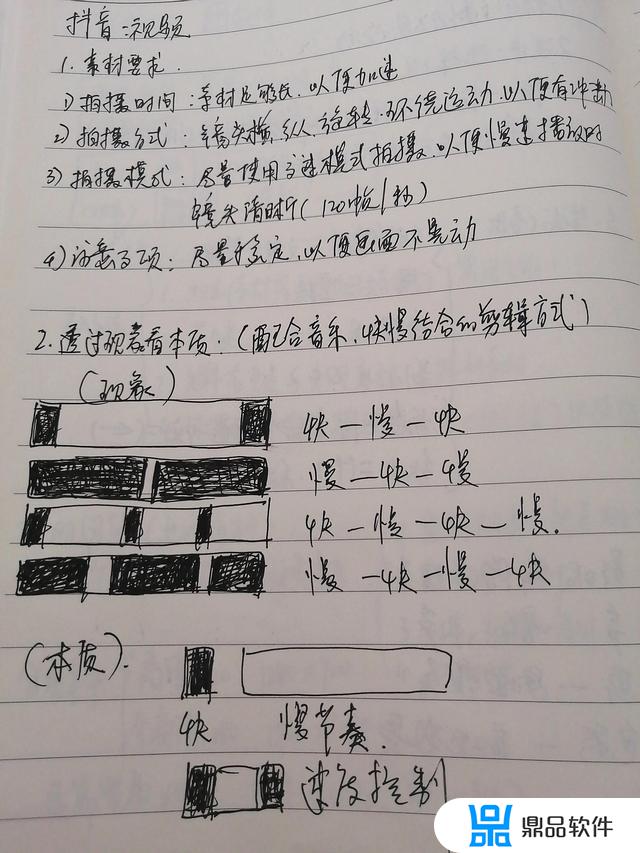 抖音:视频
1.素材要求.
1)拍摄时间:素材足够长,以便加速
2)拍摄方式:镜头横、纵、旋转、环绕运动,以便有冲击
3)拍摄模式:尽量使用高速模式拍摄,以便慢速播放时
镜头清晰(120帧/秒)
4)注意事项:尽量稳定,以便画面不晃动
2.透过现象看本质:(配合音乐,快慢结合的剪辑方式)
(现象)
快—慢—快
慢—快—慢
快—慢—快—慢.
慢—快—慢—快
(本质).
快 慢节奏.
速度控制
鼎品软件